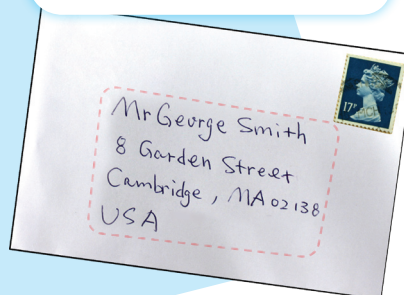 Mr George Smith
8 Garden Street
Cambridge, MA 02138
USA
17P